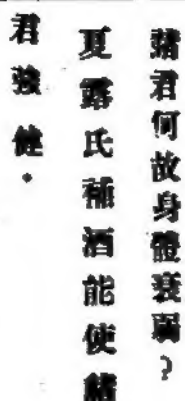 諸君何故身體衰弱?
夏露氏補酒能使諸
君強健。